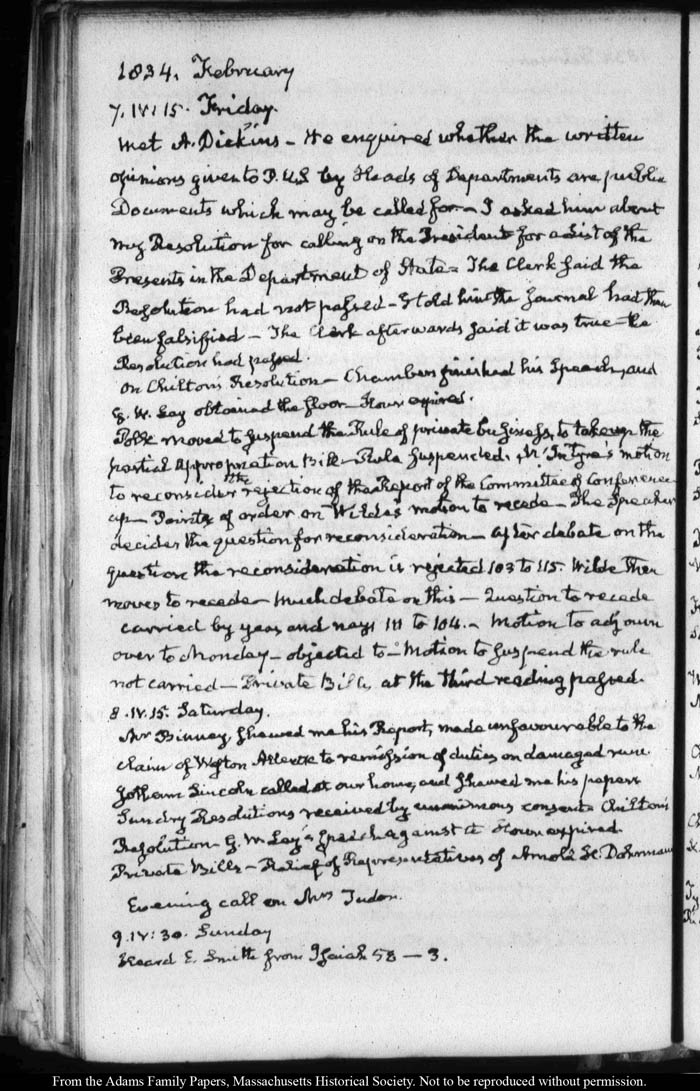 1834. February
7. IV:15. Friday.
Met A. Dickins – He enquired whether the written
opinions given to P.U.S by Heads of Departments are public
Documents which may be called for – I asked him about
my Resolution for calling on the President for a List of the
Presents in the Department of State – The Clerk said the
Resolution had not passed – I told him the Journal had then
been falsified – The Clerk afterwards said it was true the
Resolution had passed.
On Chilton's Resolution – Chambers finished his Speech, and
G. W. Lay obtained the floor – Hour expires.
Polk moved to suspend the Rule of private business, to take up the
partial Appropriation Bill – Rule suspended. McIntyre's motion
to reconsider the rejection of the Report of the Committee of Conference
up – Points of order on Wilde's motion to recede – The Speaker
decides the question for reconsideration – After debate on the
question the reconsideration is rejected 103 to 115. Wilde then
moves to recede – Much debate on this – Question to recede
carried by yeas and nays 111 to 104. – Motion to adjourn
over to Monday – objected to – Motion to suspend the rule
not carried – Private Bills, at the third reading passed.
8. IV.15. Saturday.
Mr Binney shewed me his Report, made unfavourable to the
claim of to remission of duties on damaged
Gotham Lincoln called at our house, and shewed me his papers
Sundry Resolutions received by unanimous consent Chilton's
Resolution G. W. Lay's speech against it Hour expired.
Private Bills – Relief of Representatives of Arnold H. Dohrman
Evening call on Mrs Tudor.
9. IV:30. Sunday
Heard E. Smith from Isaiah 58 – 3.
From the Adams Family Papers, Massachusetts Historical Society. Not to be reproduced without permission.